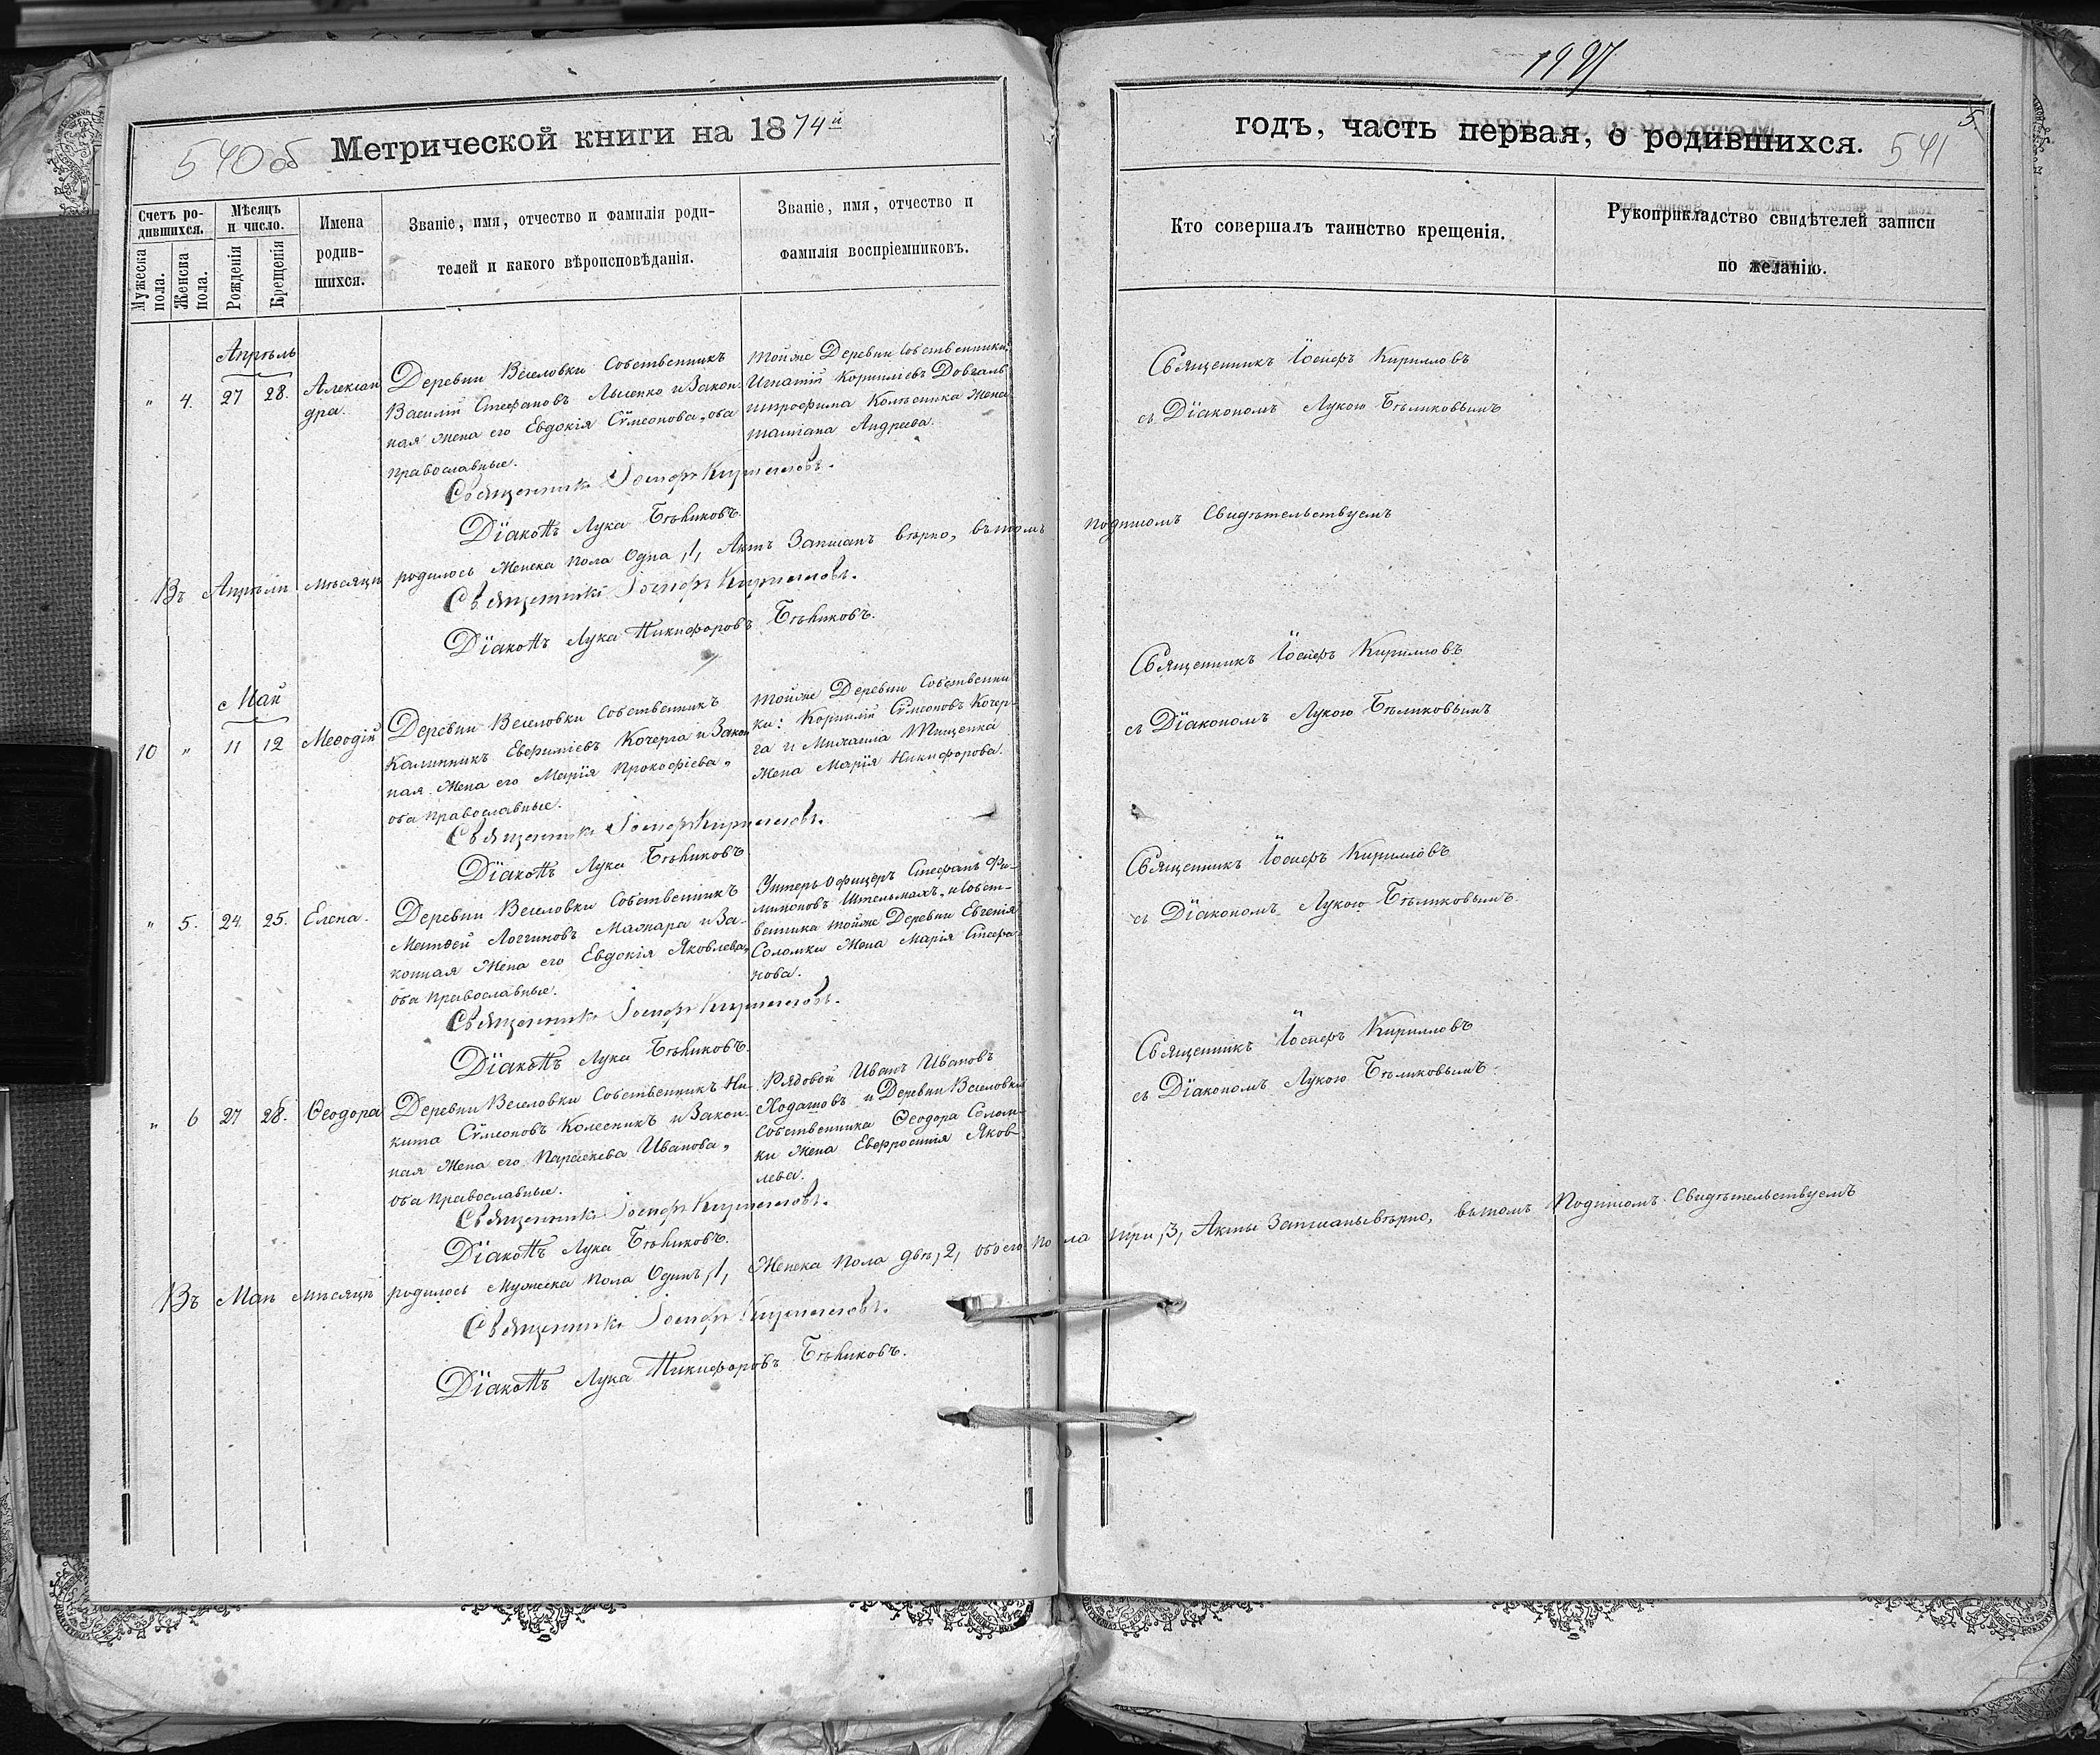 540 об
Метрической книги на 1874й
Счетъ ро-
дившихся.
Мужеска
пола.
Женска
пола.
Мѣсяцъ
и число.
Рожденія
Крещенія
Имена
родив-
шихся.
Званіе, имя, отчество и фамилія роди-
телей и какого вѣроисповѣданія.
Званіе, имя, отчество и
фамилія воспріемниковъ.
Апрѣль
" 4. 27 28. Алексан
дра.
Деревни Веселовки Собственникъ
Василій Стефановъ Лысенко и Закон-
ная жена его Евдокія Сѵмеонова, оба
православные.
тойже Деревни Собственники:
Игнатій Корниліевъ Довгаль
Трофима Колесника жена
татіана Андреева.
Священникъ Іосифъ Кирилловъ.
Діаконъ Лука Бѣликовъ.
Въ Апрѣлѣ мѣсяцѣ родилось Женска пола Одна, 1, Актъ Записанъ вѣрно, въ томъ
Священникъ Іосифъ Кирилловъ.
Діаконъ Лука Никифоровъ Бѣликовъ.
Май
10 " 11 12 Меѳодій
Деревни Веселовки Собственникъ
Калинникъ Евфиміевъ Кочерга и Закон
ная Жена его Марія Прокофіева,
оба православные.
тойже Деревни Собственни
ки: Корнилій Сѵмеоновъ Кочер-
га и Михаила Тищенка
Жена Марія Никифорова.
Священникъ Іосифъ Кирилловъ.
Діаконъ Лука Бѣликовъ
" 5. 24. 25. Елена.
Деревни Веселовки Собственникъ
Матѳей Логгиновъ Мажара и За-
конная Жена его Евдокія Яковлева,
Оба православные.
Унтеръ Офицеръ Стефанъ Фи-
лимоновъ Штельмахъ, и Собст-
венника тойже Деревни Евгенія
Соломки Жена Марія Стефа-
нова.
Священникъ Іосифъ Кирилловъ.
Діаконъ Лука Бѣликовъ.
" 6 27 28. Ѳеодора
Деревни Веселовки Собственникъ Ни-
кита Сѵмеоновъ Колесникъ и Закон-
ная Жена его Параскева Иванова,
Оба Православные.
Рядовой Иванъ Ивановъ
Ходаковъ и Деревни Веселовки
Собственника Ѳеодора Солом-
ки Жена Евфросинія Яков-
лева.
Священникъ Іосифъ Кирилловъ.
Діаконъ Лука Бѣликовъ.
Въ Маѣ мѣсяцѣ родилось Мужеска пола Одинъ, 1, Женска пола двѣ, 2, обоего по
Священникъ Іосифъ Кирилловъ.
Діаконъ Лука Никифоровъ Бѣликовъ.
годъ, часть первая, о родившихся.
5.
541
Кто совершалъ таинство крещенія.
Рукоприкладство свидѣтелей записи
по желанію.
Священникъ Іосифъ Кирилловъ
съ Діакономъ Лукою Бѣликовымъ
подписомъ Свидѣтельствуемъ
Священникъ Іосифъ Кирилловъ
съ Діакономъ Лукою Бѣликовымъ
Священникъ Іосифъ Кирилловъ
съ Діакономъ Лукою Бѣликовымъ.
Священникъ Іосифъ Кирилловъ
съ Діакономъ Лукою Бѣликовымъ.
ла три, 3, Акты Записаны вѣрно, въ томъ Подписомъ Свидѣтельствуемъ